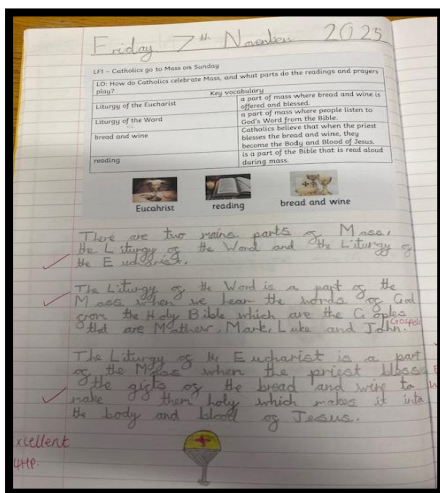 Friday 7th November 2025
LF1 – Catholics go to Mass on Sunday
LO: How do Catholics celebrate Mass, and what parts do the readings and prayers play?
Key vocabulary
Liturgy of the Eucharist
a part of mass where bread and wine is offered and blessed.
Liturgy of the Word
a part of mass where people listen to God's Word from the Bible.
bread and wine
Catholics believe that when the priest blesses the bread and wine, they become the Body and Blood of Jesus.
reading
is a part of the Bible that is read aloud during mass.
Eucahrist
reading
bread and wine
There are two mains parts of Mass,
the Liturgy of the Word and the Liturgy of
the Eucharist.
The Liturgy of the Word is a part of the
Mass when we hear the words of God
from the Holy Bible which are the Goples
that are Mathew, Mark, Luke and John.
Gospels
The Liturgy of the Eucharist is a part
of the Mass when the priest bless
the gifts of the bread and wine to
make them holy which makes it into
the body and blood of Jesus.
xcellent
4HP.